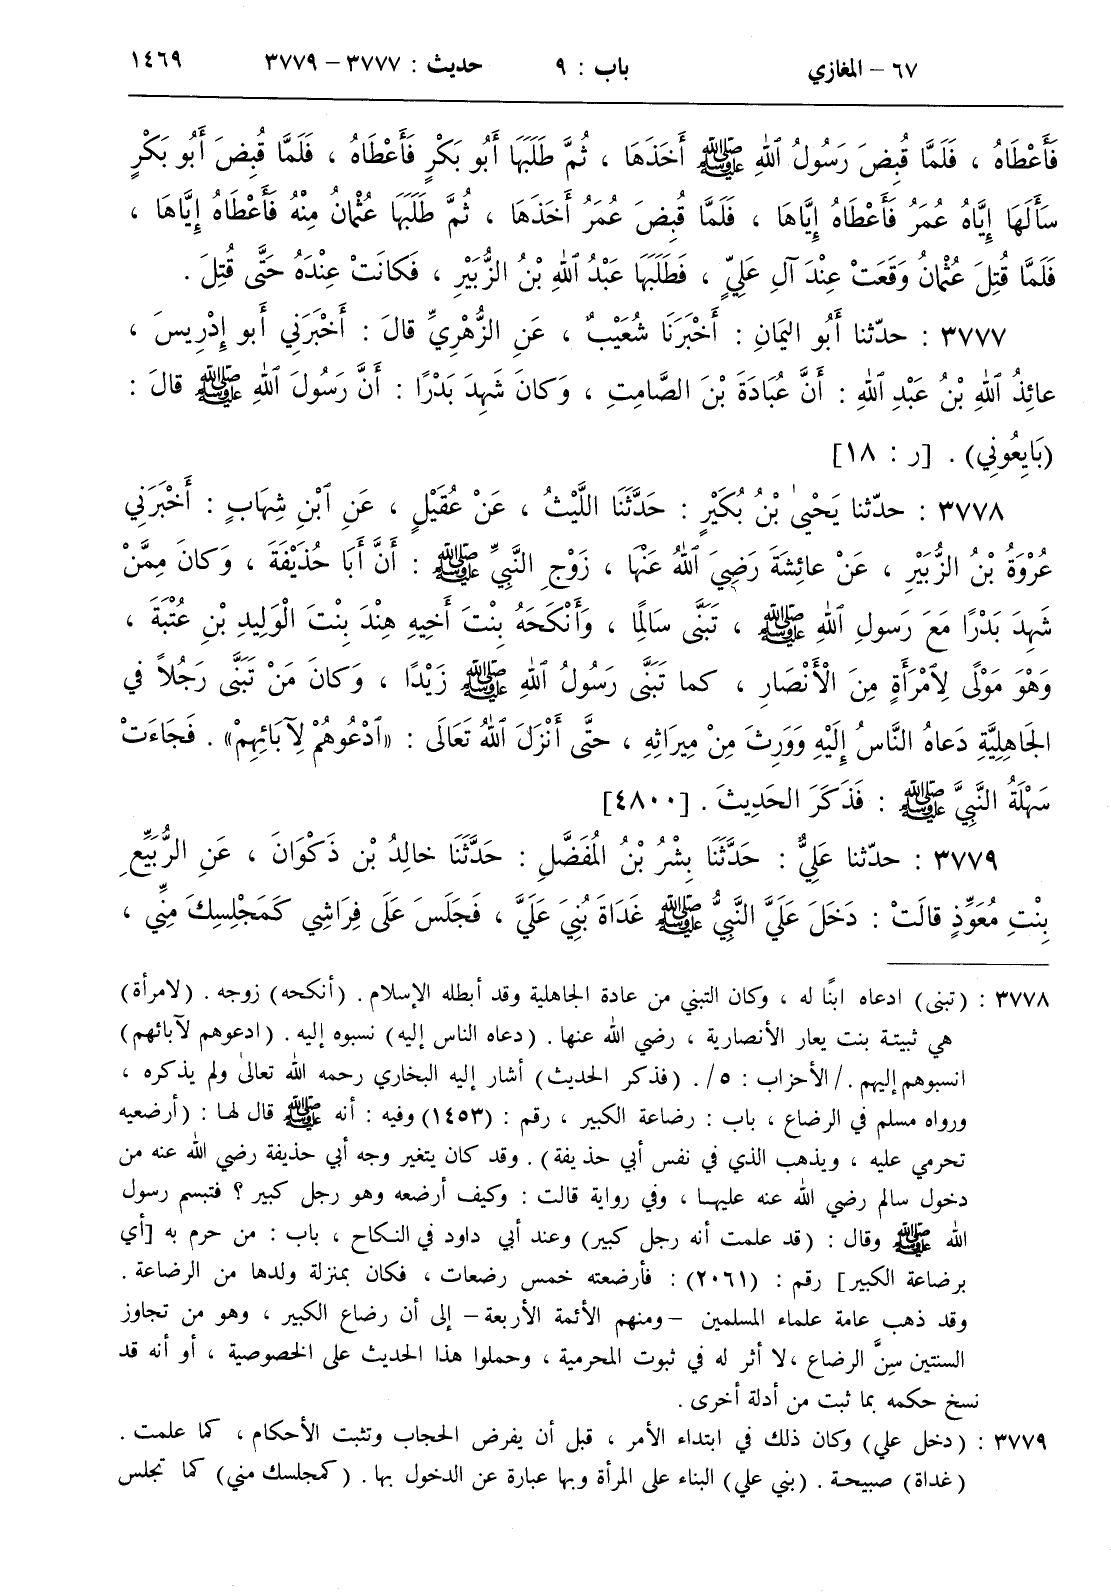 ٦٧ – المغازي باب : ٩ حديث : ٣٧٧٧ – ٣٧٧٩ ١٤٦٩
فَأَعْطَاهُ ، فَلَمَّا قُبِضَ رَسُولُ ٱللهِ ﷺ أَخَذَهَا ، ثُمَّ طَلَبَهَا أَبُو بَكْرٍ فَأَعْطَاهُ ، فَلَمَّا قُبِضَ أَبُو بَكْرٍ
سَأَلَهَا إِيَّاهُ عُمَرُ فَأَعْطَاهُ إِيَّاهَا ، فَلَمَّا قُبِضَ عُمَرُ أَخَذَهَا ، ثُمَّ طَلَبَهَا عُثْمانُ مِنْهُ فَأَعْطَاهُ إِيَّاهَا ،
فَلَمَّا قُتِلَ عُثْمانُ وَقَعَتْ عِنْدَ آلِ عَلِيٍّ ، فَطَلَبَهَا عَبْدُ ٱللهِ بْنُ الزُّبَيْرِ ، فَكانَتْ عِنْدَهُ حَتَّى قُتِلَ .
٣٧٧٧ : حدّثنا أَبُو اليَمَانِ : أَخْبَرَنَا شُعَيْبٌ ، عَنِ الزُّهْرِيِّ قالَ : أَخْبَرَنِي أَبو إِدْرِيسَ ،
عائِذُ ٱللهِ بْنُ عَبْدِ ٱللهِ : أَنَّ عُبَادَةَ بْنَ الصَّامِتِ ، وَكانَ شَهِدَ بَدْرًا : أَنَّ رَسُولَ ٱللهِ ﷺ قالَ :
(بَايِعُونِي) . [ر : ١٨]
٣٧٧٨ : حدّثنا يَحْيىٰ بْنُ بُكَيْرٍ : حَدَّثَنَا اللَّيْثُ ، عَنْ عُقَيْلٍ ، عَنِ ٱبْنِ شِهَابٍ : أَخْبَرَنِي
عُرْوَةُ بْنُ الزُّبَيْرِ ، عَنْ عائِشَةَ رَضِيَ ٱللهُ عَنْهَا ، زَوْجِ النَّبِيِّ ﷺ : أَنَّ أَبَا حُذَيْفَةَ ، وَكانَ مِمَّنْ
شَهِدَ بَدْرًا مَعَ رَسولِ ٱللهِ ﷺ ، تَبَنَّى سَالِمًا ، وَأَنْكَحَهُ بِنْتَ أَخِيهِ هِنْدَ بِنْتَ الْوَلِيدِ بْنِ عُتْبَةَ ،
وَهْوَ مَوْلًى لِٱمْرَأَةٍ مِنَ الْأَنْصَارِ ، كما تَبَنَّى رَسُولُ ٱللهِ ﷺ زَيْدًا ، وَكانَ مَنْ تَبَنَّى رَجُلاً في
الجَاهِلِيَّةِ دَعاهُ النَّاسُ إِلَيْهِ وَوَرِثَ مِنْ مِيرَاثِهِ ، حتَّى أَنْزَلَ ٱللهُ تَعَالَى : «ٱدْعُوهُمْ لِآبَائِهِمْ» . فَجَاءَتْ
سَهْلَةُ النَّبِيَّ ﷺ : فَذَكَرَ الحَدِيثَ . [٤٨٠٠]
٣٧٧٩ : حدّثنا عَلِيٌّ : حَدَّثَنَا بِشْرُ بْنُ المُفَضَّلِ : حَدَّثَنَا خالِدُ بْن ذَكْوَانَ ، عَنِ الرُّبَيِّعِ
بِنْتِ مُعَوِّذٍ قالَتْ : دَخَلَ عَلَيَّ النَّبِيُّ ﷺ غَدَاةَ بُنِيَ عَلَيَّ ، فَجَلَسَ عَلَى فِرَاشِي كَمَجْلِسِكَ مِنِّي ،
٣٧٧٨ : (تبنى) ادعاه ابنًا له ، وكان التبني من عادة الجاهلية وقد أبطله الإسلام . (أنكحه) زوجه . (لامرأة)
هي ثبيتة بنت يعار الأنصارية ، رضي الله عنها . (دعاه الناس إليه) نسبوه إليه . (ادعوهم لآبائهم)
انسبوهم إليهم . /الأحزاب : ٥/ . (فذكر الحديث) أشار إليه البخاري رحمه الله تعالىٰ ولم يذكره ،
ورواه مسلم في الرضاع ، باب : رضاعة الكبير ، رقم : (١٤٥٣) وفيه : أنه ﷺ قال لها : (أرضعيه
تحرمي عليه ، ويذهب الذي في نفس أبي حذيفة) . وقد كان يتغير وجه أبي حذيفة رضي الله عنه من
دخول سالم رضي الله عنه عليها ، وفي رواية قالت : وكيف أرضعه وهو رجل كبير ؟ فتبسم رسول
الله ﷺ وقال : (قد علمت أنه رجل كبير) وعند أبي داود في النكاح ، باب : من حرم به [أي
برضاعة الكبير] رقم : (٢٠٦١) : فأرضعته خمس رضعات ، فكان بمنزلة ولدها من الرضاعة .
وقد ذهب عامة علماء المسلمين –ومنهم الأئمة الأربعة– إلى أن رضاع الكبير ، وهو من تجاوز
السنتين سِنَّ الرضاع ،لا أثر له في ثبوت المحرمية ، وحملوا هذا الحديث على الخصوصية ، أو أنه قد
نسخ حكمه بما ثبت من أدلة أخرى .
٣٧٧٩ : (دخل علي) وكان ذلك في ابتداء الأمر ، قبل أن يفرض الحجاب وتثبت الأحكام ، كما علمت .
(غداة) صبيحة . (بني علي) البناء على المرأة وبها عبارة عن الدخول بها . (كمجلسك مني) كما تجلس